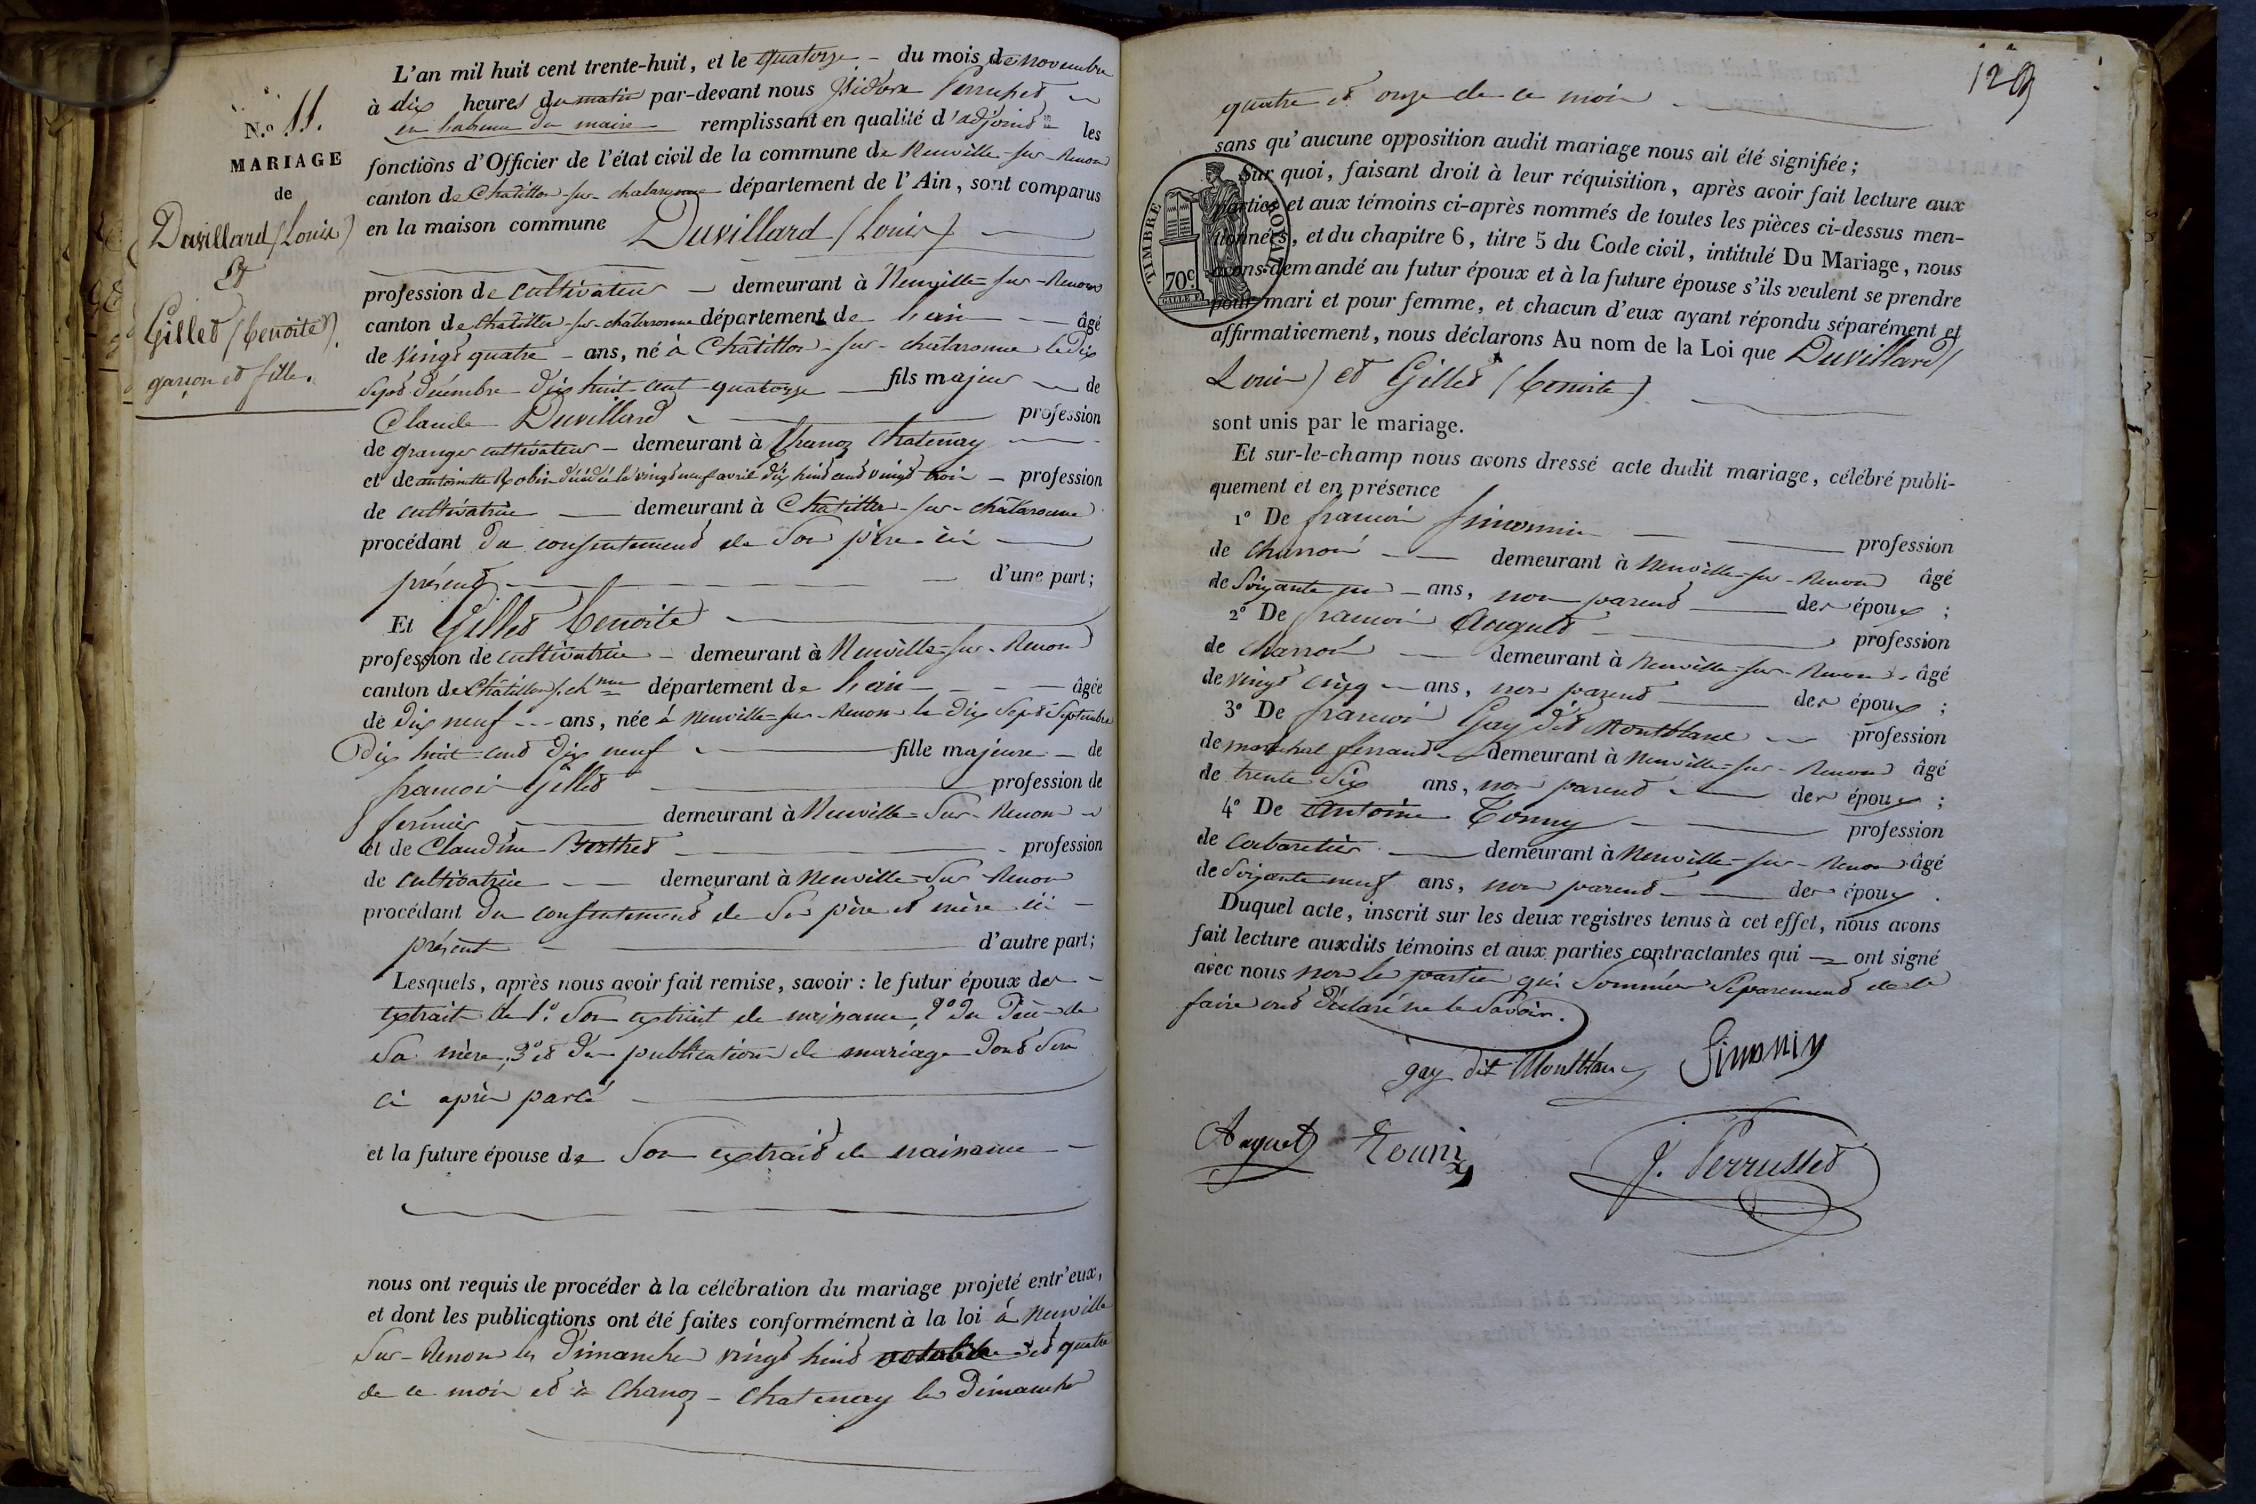 L'an mil huit cent trente-huit, et le quatorze - du mois de novembre
à dix heures du matin par-devant nous Isidore Perrusset
en l'absence du maire remplissant en qualité d'adjoint les
N.º 11.
MARIAGE
de
Duvillard (Louis)
Et
Gillet (Benoite).
garçon et fille.
fonctions d'Officier de l'état civil de la commune de Neuville-sur-Renon
canton de Chatillon-sur-chalaronne département de l'Ain, sont comparus
en la maison commune Duvillard (Louis)
profession de cultivateur - demeurant à Neuville-sur-Renon
canton de Chatillon-sur-chalaronne département de l'ain âgé
de vingt quatre - ans, né à Châtillon-sur-chalaronne le dix
sept décembre dix huit cent quatorze fils majeur de
Claude Duvillard profession
de granger cultivateur - demeurant à Chanoz Chatenay
et de antoinette Robin décédée le vingt neuf avril dix huit cent vingt trois - profession
de cultivatrice demeurant à Chatillon-sur-chalaronne
procédant du consentement de son père ici
présent d'une part;
Et Gillet Benoite
profession de cultivatrice - demeurant à Neuville-sur-Renon
canton de Châtillon s. ch.nne département de l'ain - âgée
de dix neuf - ans, née à Neuville-sur-Renon le dix sept septembre
dix huit cent dix neuf fille majeure - de
francois Gillet profession de
fermier demeurant à Neuville-sur-Renon
et de Claudine Berthet - profession
de cultivatrice demeurant à Neuville-sur-Renon
procédant du consentement de ses père et mère ici
présent d'autre part;
Lesquels, après nous avoir fait remise, savoir : le futur époux des
extrait de 1º. son extrait de naissance, 2º du décès de
sa mère, 3º et des publications de mariage dont sera
ci après parlé
et la future épouse de son extrait de naissance
nous ont requis de procéder à la célébration du mariage projeté entr'eux,
et dont les publications ont été faites conformément à la loi à Neuville
sur-Renon les dimanches vingt huit octobre et quatre
de ce mois et à Chanoz-Chatenay les dimanches
129
quatre et onze de ce mois
sans qu'aucune opposition audit mariage nous ait été signifiée;
Sur quoi, faisant droit à leur réquisition, après avoir fait lecture aux
parties et aux témoins ci-après nommés de toutes les pièces ci-dessus men-
tionnées, et du chapitre 6, titre 5 du Code civil, intitulé Du Mariage, nous
avons demandé au futur époux et à la future épouse s'ils veulent se prendre
pour mari et pour femme, et chacun d'eux ayant répondu séparément et
affirmativement, nous déclarons Au nom de la Loi que Duvillard (
Louis) et Gillet (Benoite)
TIMBRE ROYAL
70c.
sont unis par le mariage.
Et sur-le-champ nous avons dressé acte dudit mariage, célébré publi-
quement et en présence
1º De francois Simonin profession
de charron demeurant à Neuville-sur-Renon âgé
de soixante un - ans, non parent des époux ;
2º De francois Auguet profession
de charron demeurant à Neuville-sur-Renon âgé
de vingt cinq - ans, non parent des époux ;
3º De francois Gay dit Montblanc profession
de marechal ferrand demeurant à Neuville-sur-Renon âgé
de trente six ans, non parent des époux ;
4º De Antoine profession
de cabaretier demeurant à Neuville-sur-Renon âgé
de soixante neuf ans, non parent des époux .
Duquel acte, inscrit sur les deux registres tenus à cet effet, nous avons
fait lecture auxdits témoins et aux parties contractantes qui ont signé
avec nous non les parties qui sommées séparement de le
faire ont déclaré ne le savoir.
gay dit Montblanc Simonin
J. Perrusset